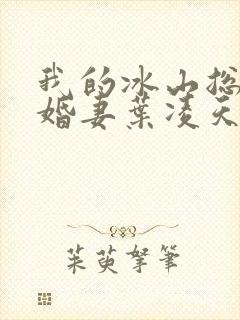 我的冰山总
婚妻葉凌天
茱萸拏筆